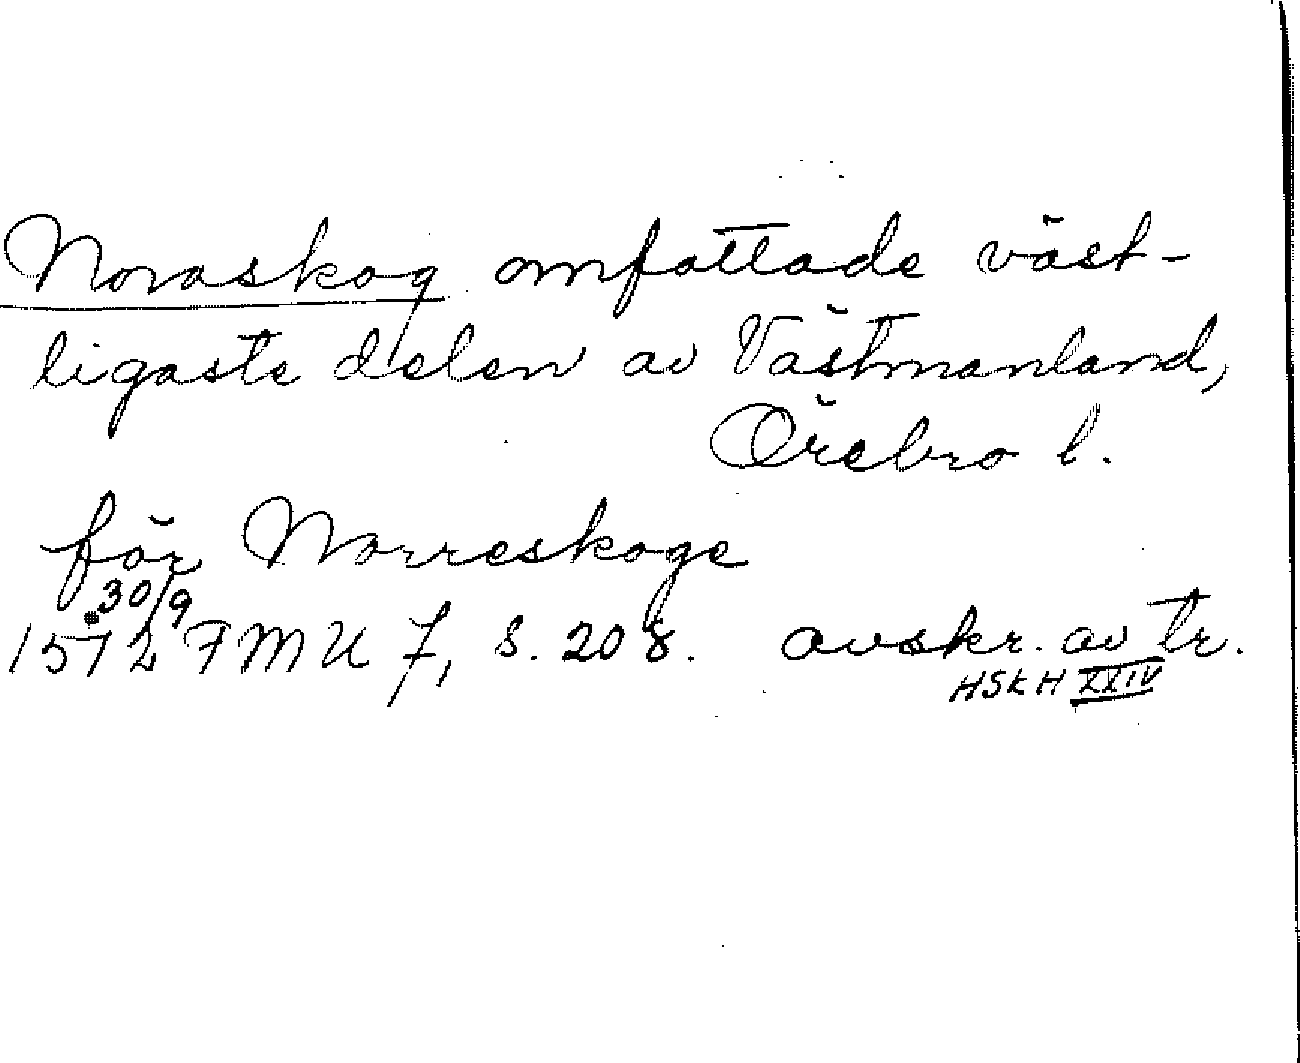 Noraskog omfattade väst-
ligaste delen av Västmanland,
Örebro l.
för Norreskoge
30/9
1572 FMU 7, s. 208. avskr. av tr.
HSkH XXIV